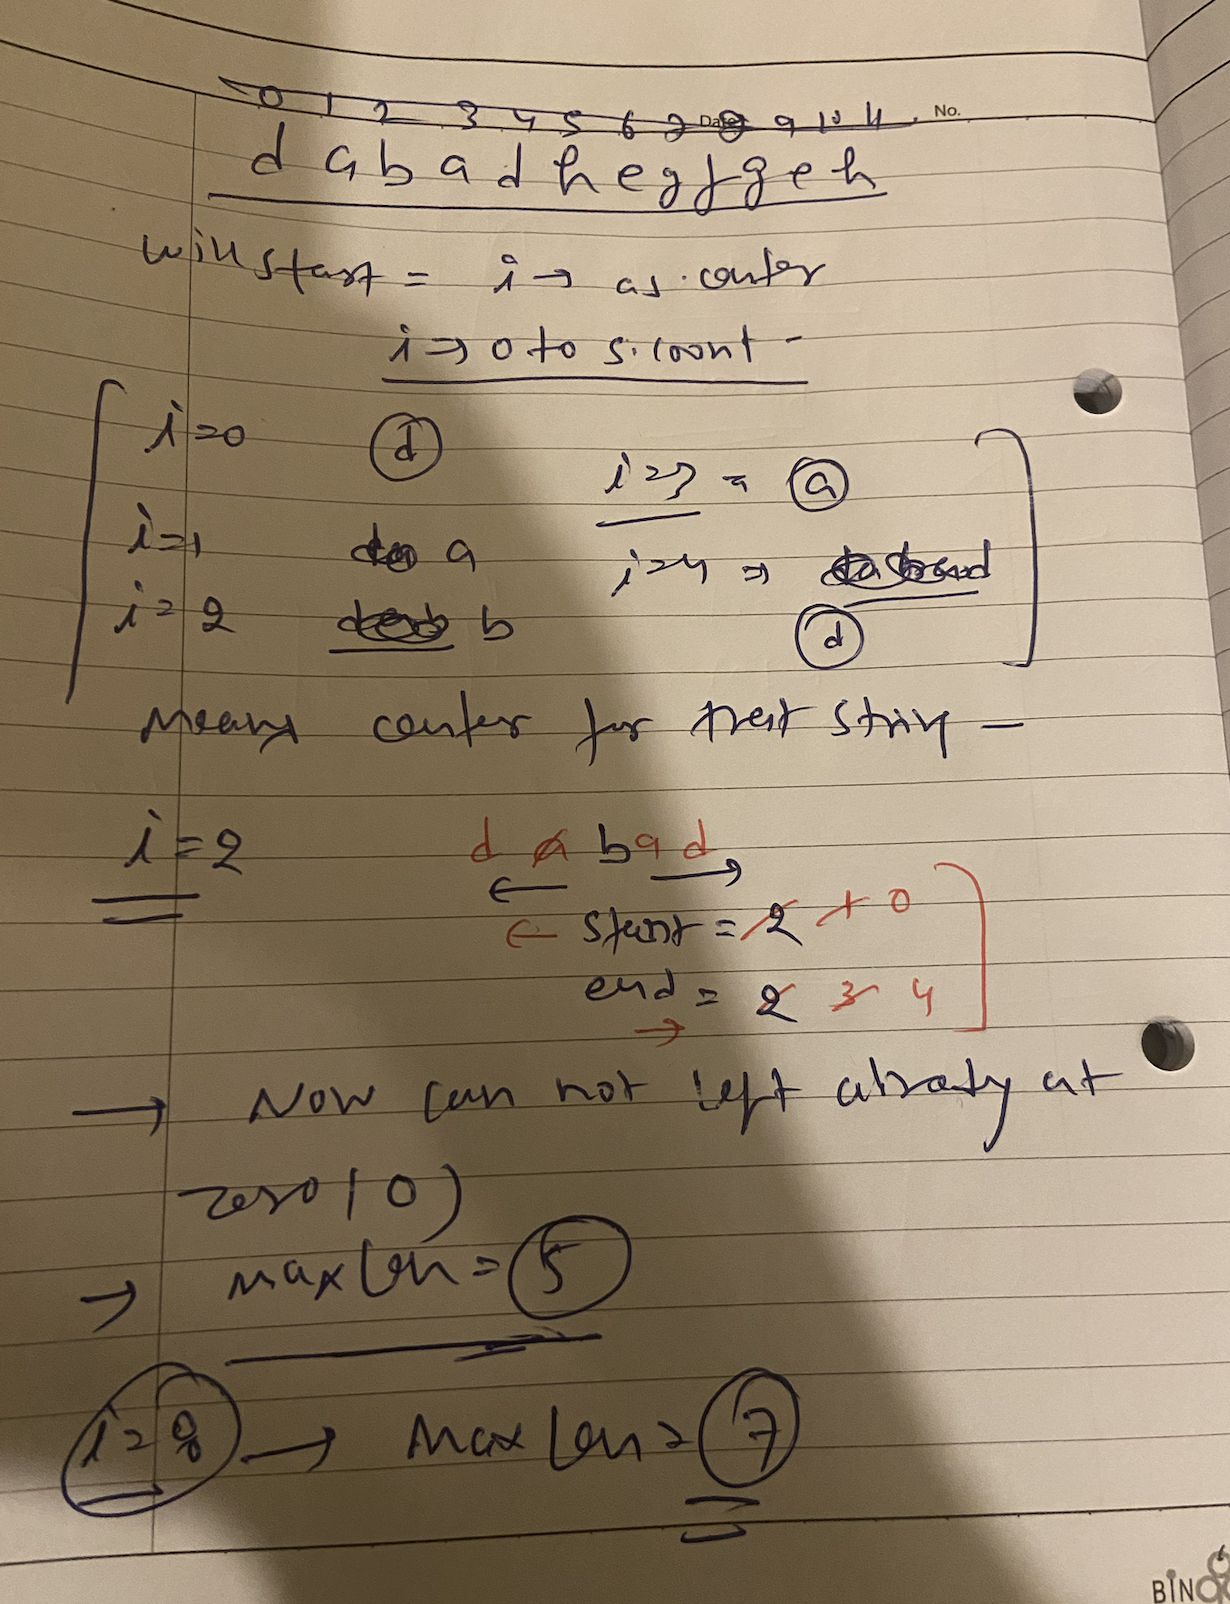 0 1 2 3 4 5 6 7 8 9 10 11
Date No.
d a b a d h e g f g e h
will start = i → as center
i → 0 to s.count -
i=0 d
i=3 = a
i=1 a
i=4 ⇒
i=2 b
d
Means center for that string -
i=2 d a b a d
← start = 2 1 0
end = 2 3 4
→
→ Now can not left already at
zero (0)
→ max len = 5
i=8 → Max len = 7
BIN